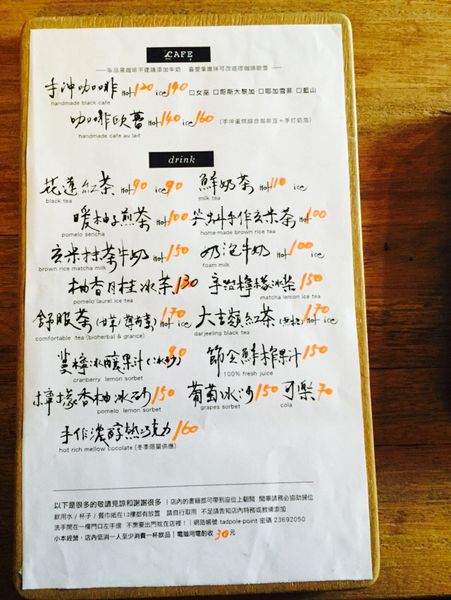 CAFE
手沖咖啡 Hot 120 ice 140 □女巫 □哥斯大黎加 □耶加雪菲 □藍山
handmade black cafe
咖啡歐蕾 Hot 140 ice 160
handmade cafe au lait
drink
花蓮紅茶 Hot 90 ice 90 鮮奶茶 Hot 110 ice
black tea milk tea
暖柚子煎茶 Hot 100 手作玄米茶 Hot 100
pomelo sencha home-made brown rice tea
玄米抹茶牛奶 Hot 150 奶泡牛奶 Hot 100 ice
brown rice matcha milk foam milk
柚香月桂冰茶 130 檸檬冰茶 150
pomelo laurel ice tea matcha lemon ice tea
舒服茶 Hot 170 ice 大吉嶺紅茶 Hot 170 ice
comfortable tea (bioherbal & grance) darjeeling black tea
蔓檸冰釀果汁 (冰砂) 90 節令鮮榨果汁 150
cranberry lemon sorbet 100% fresh juice
檸檬香柚冰砂 150 葡萄冰沙 150 可樂 70
pomelo lemon sorbet grapes sorbet cola
手作濃醇熱巧克力 160
hot rich mellow cocolate (冬季限量供應)
以下是很多的敬請見諒和謝謝很多 | 店內的書籍都可帶到座位上翻閱 閱畢請務必協助歸位
飲用水 / 杯子 / 餐巾紙在1.2樓都有放置 請自行取用 不足請告知店內特務或教練添加
洗手間在一樓門口左手邊 不需要出門就在店裡！ | 網路帳號 tadpole-point 密碼 23692050
小本經營，店內低消一人至少消費一杯飲品 | 電腦用電酌收 30 元